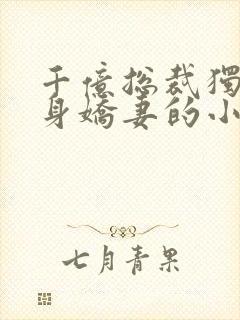 千億總裁獨
身嬌妻的小
七月青果